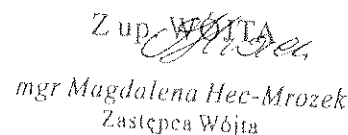 Z up. WÓJTA
mgr Magdalena Hec-Mrozek
Zastępca Wójta